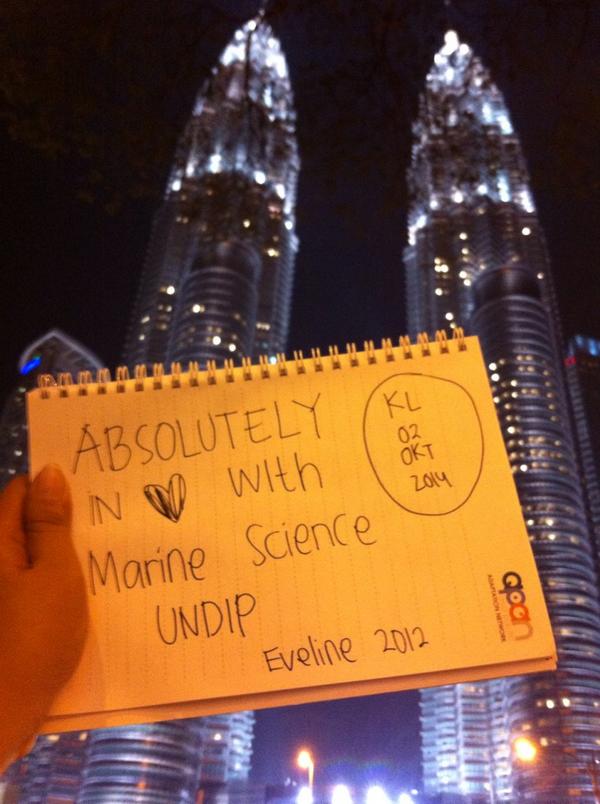 ABSOLUTELY
IN ♥ with
Marine Science
UNDIP
Eveline 2012
KL
02
OKT
2014
apan
ADAPTATION NETWORK